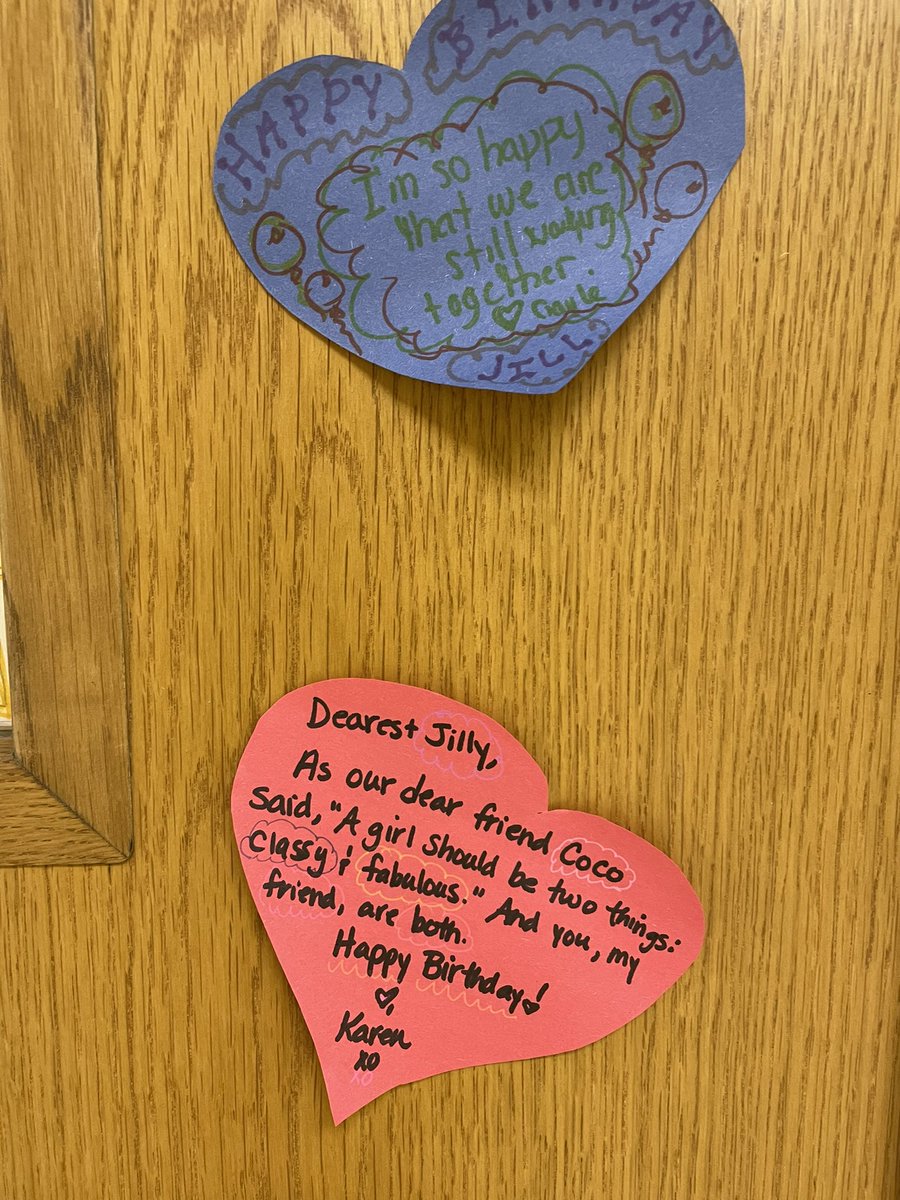 HAPPY
BIRTHDAY
I'm so happy
that we are
still working
together.
♡
JILL
Dearest Jilly,
As our dear friend Coco
said, "A girl should be two things:
classy & fabulous." And you, my
friend, are both.
Happy Birthday!
♡,
Karen
xo
xo